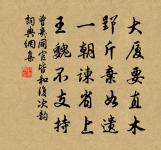 大廈要直木
郢斤棄如遺
一朝諫省上
王魏不支持
曾吳同官皆和復次韻
詞典網集